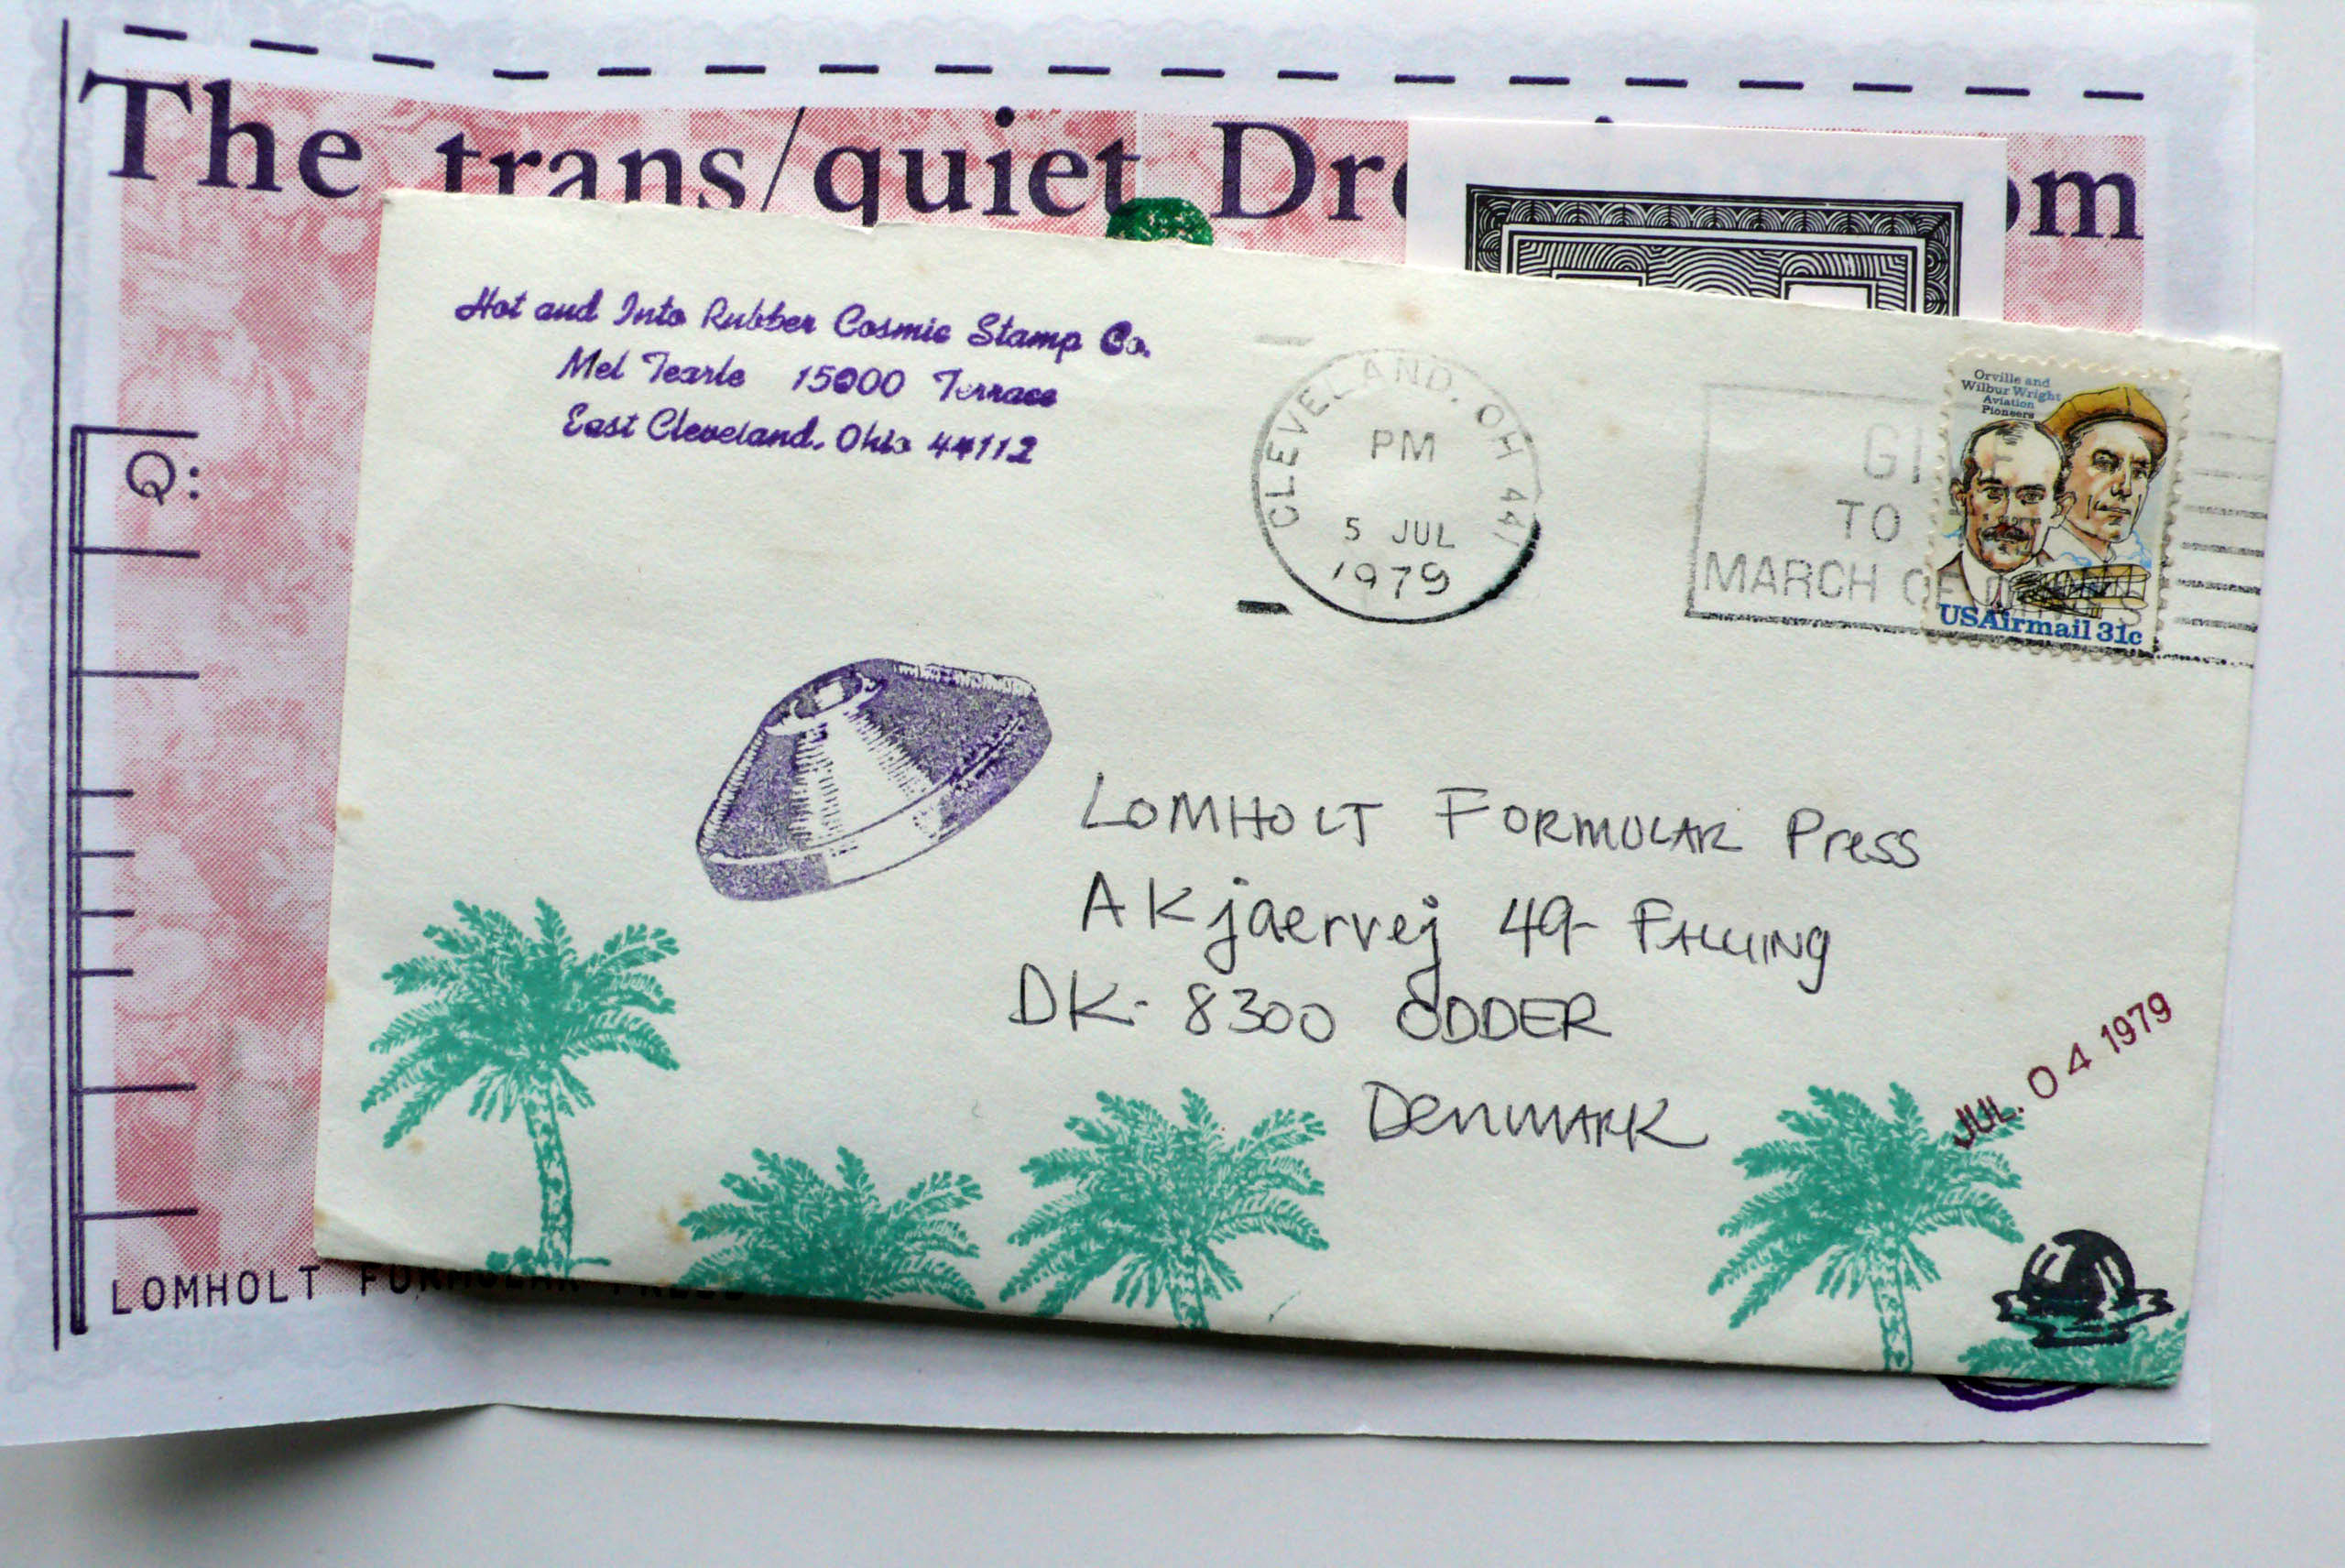 The trans/quiet
om
Q:
LOMHOLT
Hot and Into Rubber Cosmic Stamp Co.
Mel Tearle 15000 Terrace
East Cleveland, Ohio 44112
CLEVELAND, OH 441
PM
5 JUL
1979
TO
MARCH OF
Orville and
Wilbur Wright
Aviation
Pioneers
USAirmail 31c
LOMHOLT FORMULAR Press
AKjaervej 49- FALLING
DK- 8300 ODDER
DENMARK
JUL. 04 1979